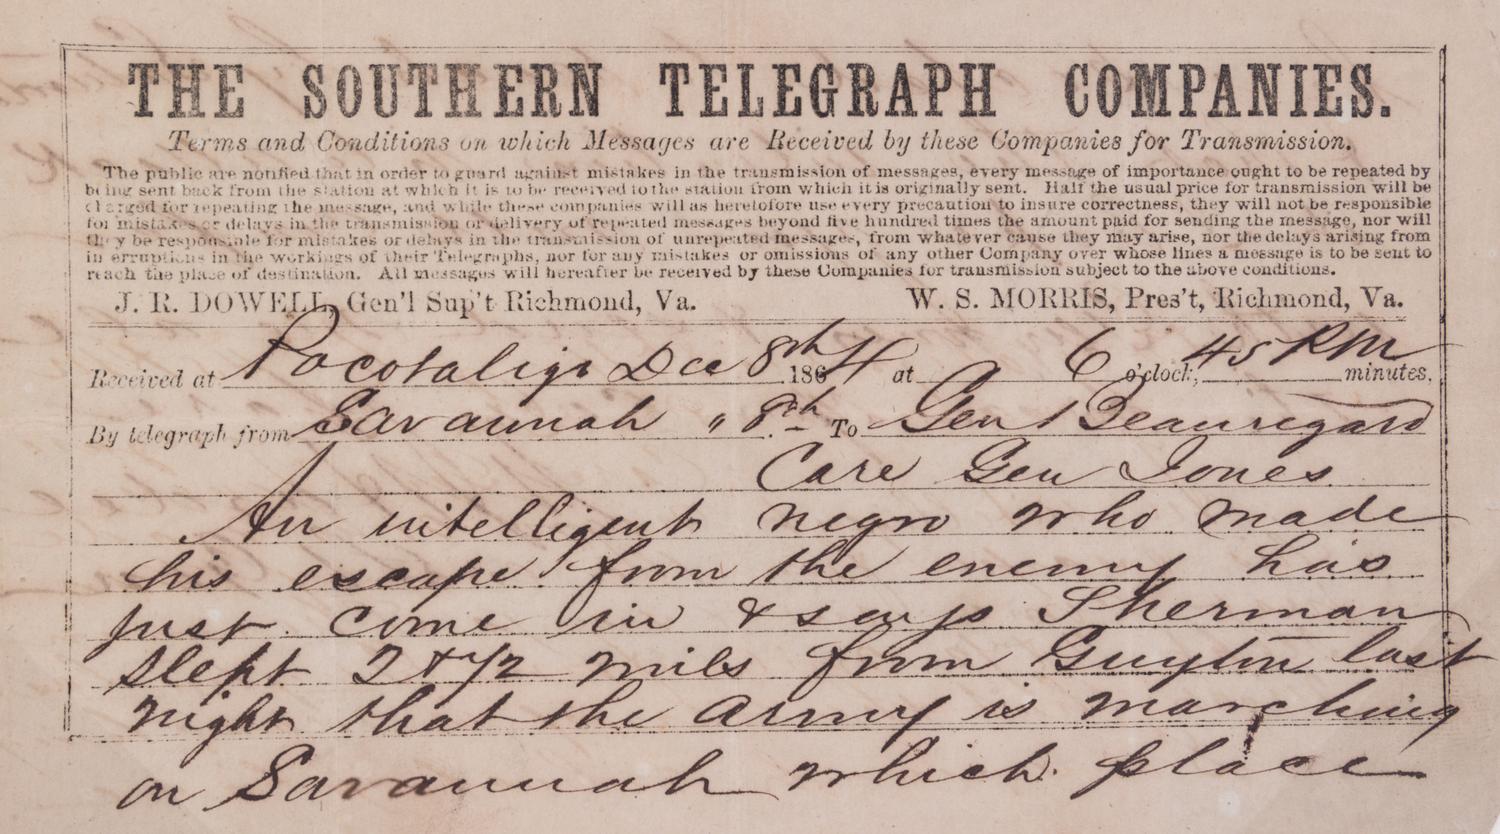 THE SOUTHERN TELEGRAPH COMPANIES.
Terms and Conditions on which Messages are Received by these Companies for Transmission.
The public are notified that in order to guard against mistakes in the transmission of messages, every message of importance ought to be repeated by
being sent back from the station at which it is to be received to the station from which it is originally sent. Half the usual price for transmission will be
charged for repeating the message, and while these companies will as heretofore use every precaution to insure correctness, they will not be responsible
for mistakes or delays in the transmission or delivery of repeated messages beyond five hundred times the amount paid for sending the message, nor will
they be responsible for mistakes or delays in the transmission of unrepeated messages, from whatever cause they may arise, nor the delays arising from
in erruptions in the workings of their Telegraphs, nor for any mistakes or omissions of any other Company over whose lines a message is to be sent to
reach the place of destination. All messages will hereafter be received by these Companies for transmission subject to the above conditions.
J. R. DOWELL, Gen'l Sup't Richmond, Va. W. S. MORRIS, Pres't, Richmond, Va.
Received at Pocotaligo Dec 8th 1864 at 6 o'clock, 45 PM minutes.
By telegraph from Savannah " 8th To Gen Beauregard
Care Gen Jones
An intelligent negro who made
his escape from the enemy has
just come in & says Sherman
slept 2 & 1/2 miles from Guyton last
night that the army is marching
on Savannah which place